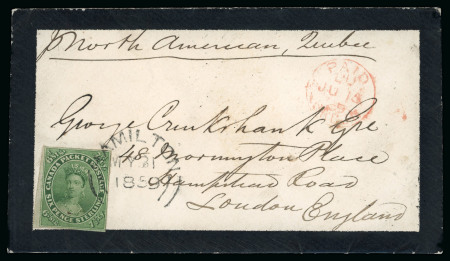 p North American, Quebec
PAID
JU 13
George Cruikshank Esqre
48 Mornington Place
Hampstead Road
London England
HAMILTON
MY 31
1859
CANADA PACKET POSTAGE
SIX PENCE STERLING